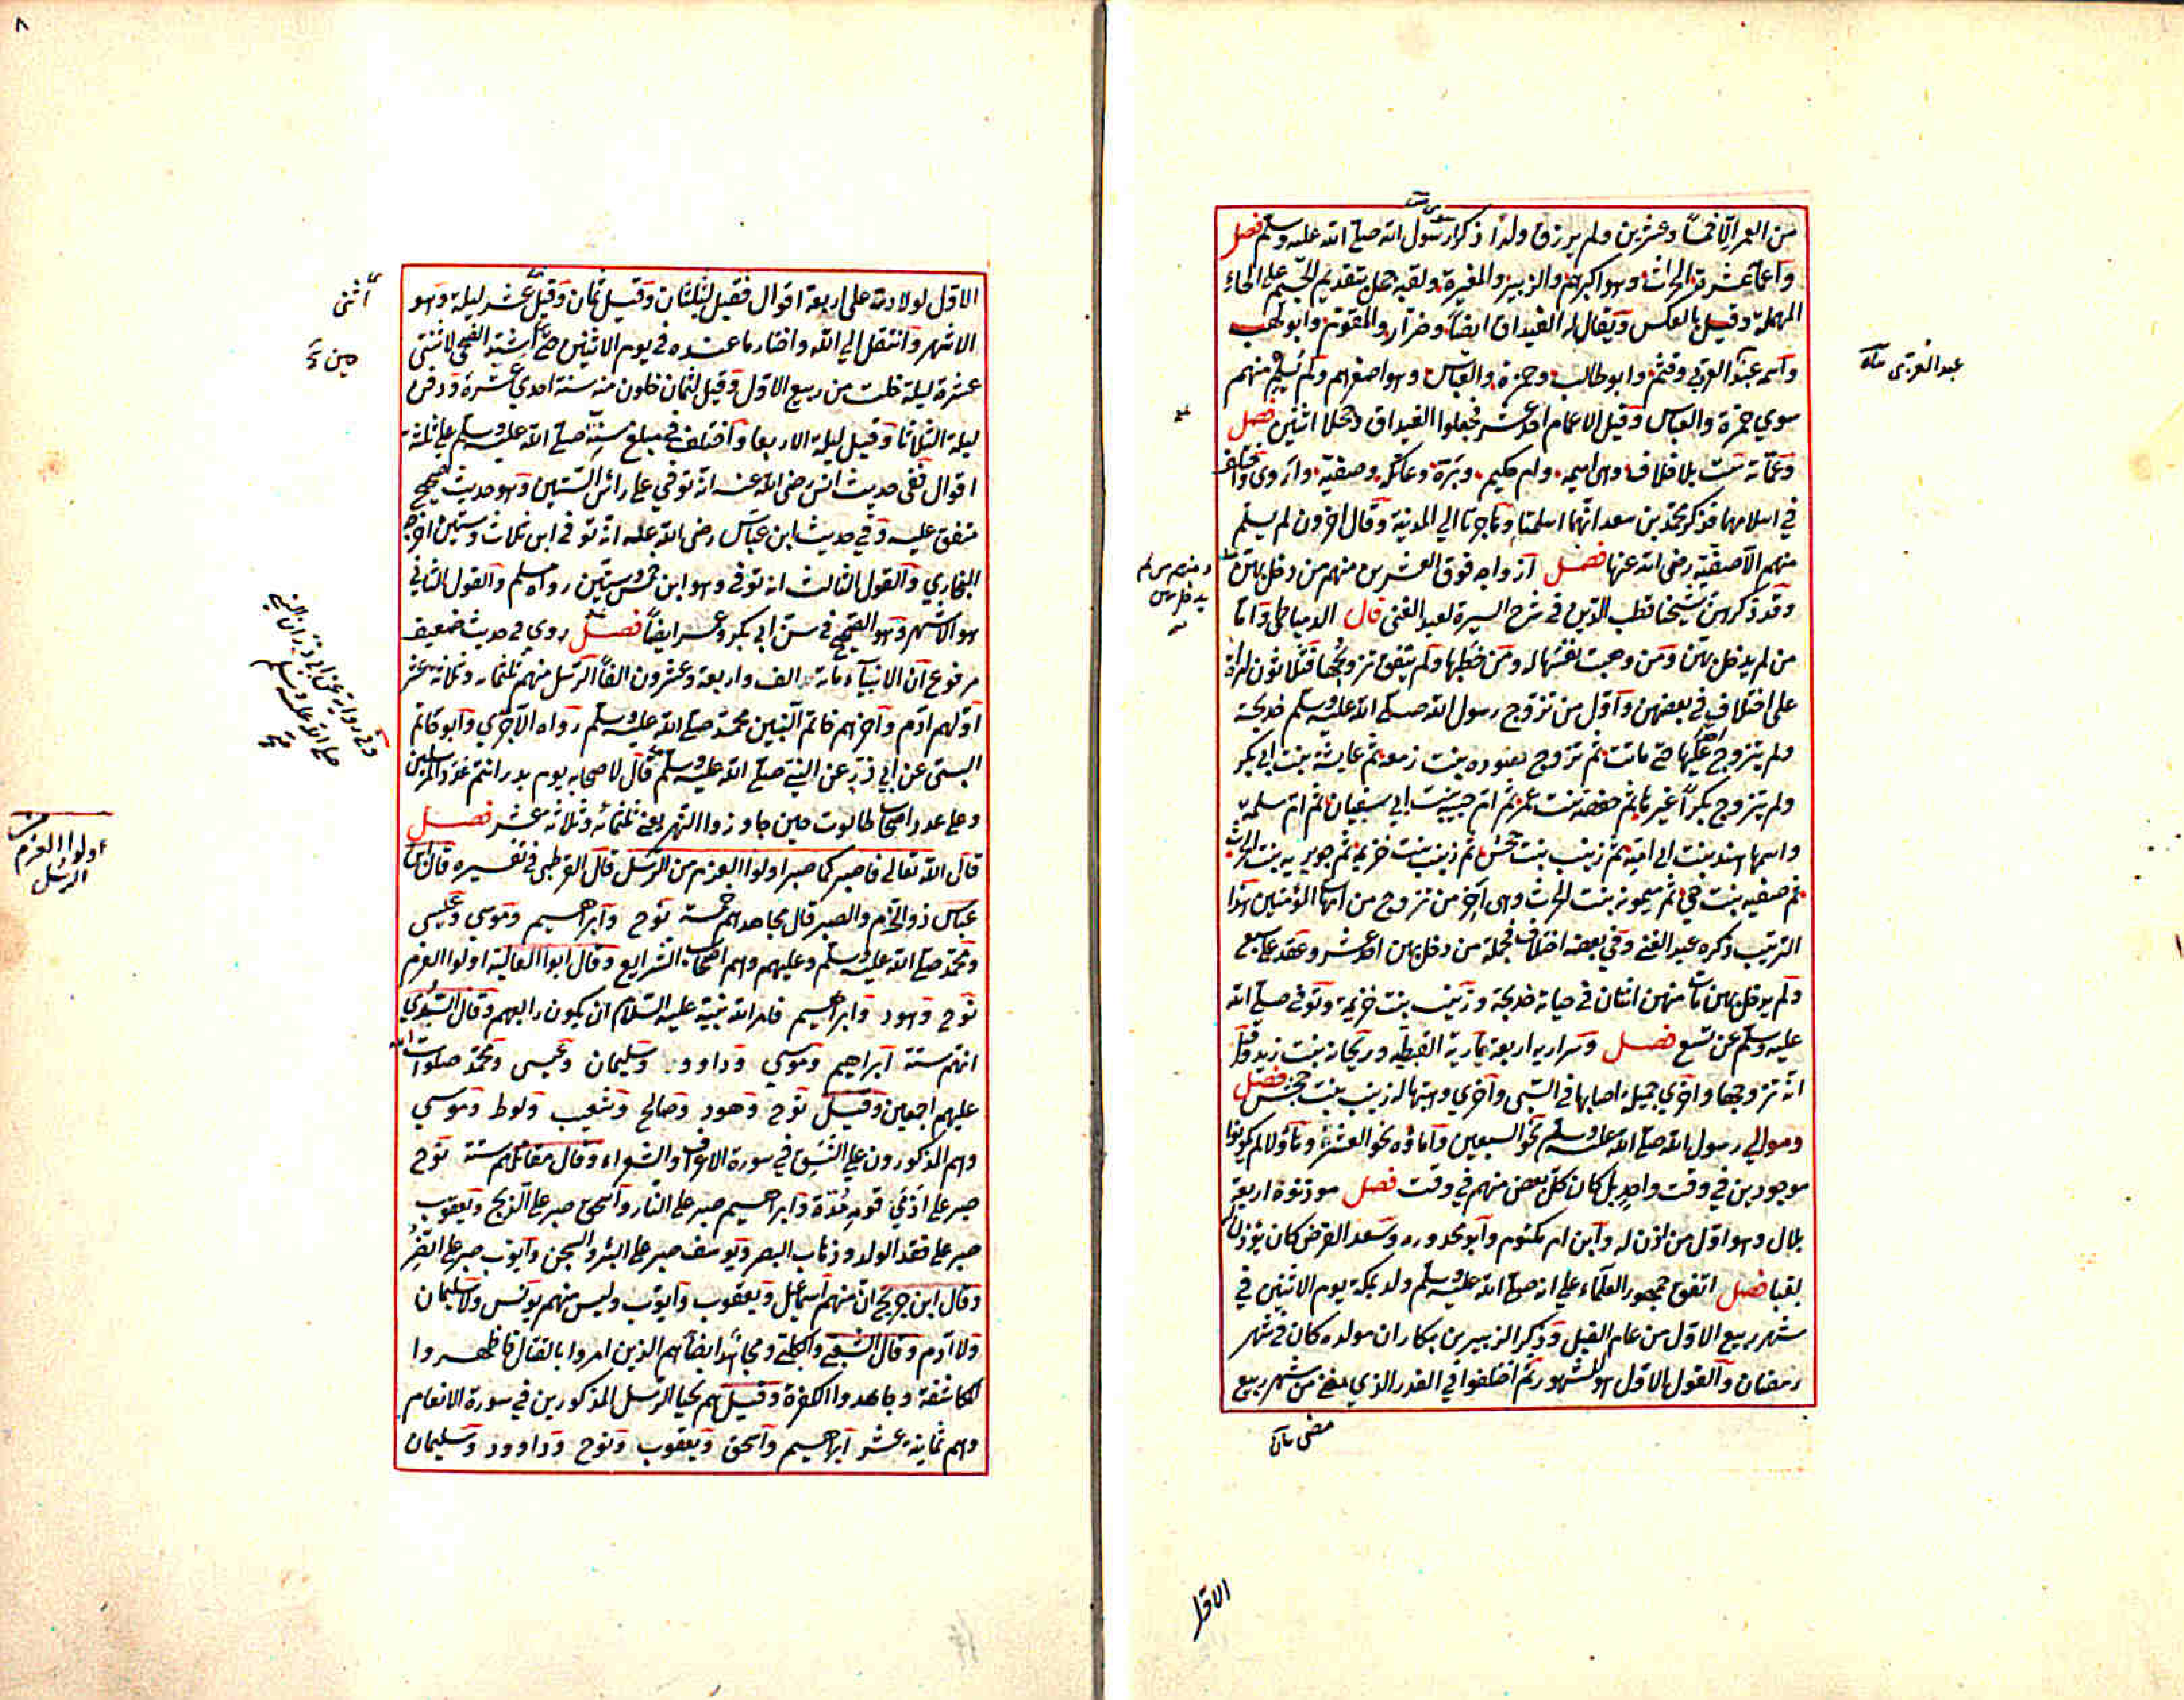 من العمر الا خمسا وعشرين ولم يرزق ولدا ذكرا رسول الله صلى الله عليه وسلم فصل
سوى
وأعمامه عشرة الحراث وهو أكبرهم والزبير والمغيرة ولقبه حجل بتقديم الجيم على الحاء
المهملة وقيل بالعكس ويقال له الغيداق ايضا وضرار والمقوم وابو لهب
واسمه عبد العزى وقثم وابو طالب وحمزة والعباس وهو اصغرهم ولم يسلم منهم
عبد العزى
سوي حمزة والعباس وقيل الاعمام احد عشر فجعلوا الغيداق وحجلا اثنين فصل
وعماته ست بلا خلاف وهي اميمه وام حكيم وبرة وعاتكه وصفية واروى واختلف
في اسلامهما فذكر محمد بن سعد انهما اسلمتا وهاجرتا الي المدينة وقال اخرون لم يسلم
منهم الا صفية رضي الله عنها فصل ازواجه فوق العشرين منهم من دخل بهن
ومنهم من لم يدخل بهن
وقد ذكرهن شيخنا قطب الدين في شرح السيرة لعبد الغني قال الدمياطي واما
من لم يدخل بهن ومن وهبت نفسها له ومن خطبها ولم يتفق تزوجها فثلاثون امراة
على اختلاف في بعضهن واول من تزوج رسول الله صلى الله عليه وسلم خديجة
ولم يتزوج عليها حتي ماتت ثم تزوج بعد سوده بنت زمعه ثم عايشة بنت ابي بكر
ولم يتزوج بكرا غيرها ثم حفصة بنت عمر ثم ام حبيبة بنت ابي سفيان ثم ام سلمة
واسمها هند بنت ابي امية ثم زينب بنت جحش ثم زينب بنت خزيمة ثم جويرية بنت الحراث
ثم صفيه بنت حي ثم ميمونه بنت الحراث وهي اخر من تزوج من امهات المؤمنين هذا
الترتيب ذكره عبد الغني وفي بعضه اختلاف فجملة من دخل بهن احد عشر وعقد على سبع
ولم يدخل بهن مات منهن اثنتان في حياته خديجة وزينب بنت خزيمة وتوفي صلى الله
عليه وسلم عن تسع فصل وسراريه اربعة مارية القبطيه وريحانه بنت زيد وقيل
انه تزوجها واخري جميله اصابها في السبى واخري وهبتها له زينب بنت جحش فصل
وموالي رسول الله صلى الله عليه وسلم نحو السبعين واماؤه نحو العشرة وهاؤلا لم يكونوا
موجودين في وقت واحد بل كان كل بعض منهم في وقت فصل موذنوه اربعة
بلال وهو اول من اذن له وابن ام مكتوم وابو محذوره وسعد القرض كان يؤذن له
بقبا فصل اتفق جمهور العلماء على انه صلى الله عليه وسلم ولد بمكة يوم الاثنين في
شهر ربيع الاول من عام الفيل وذكر الزبير بن بكار ان مولده كان في شهر
رمضان والقول الاول هو المشهور ثم اختلفوا في القدر الذي مضى من شهر ربيع
مضى
الاول
٨
الاول لولادته على اربعة اقوال فقيل لليلتان وقيل ثمان وقيل عشر ليلة وهو
اثنى
الاشهر وانتقل الي الله واختار ما عنده في يوم الاثنين حين اشتد الضحى لاثنتى
حين
عشرة ليلة خلت من ربيع الاول وقيل لثمان خلون منه سنة احدي عشرة ودفن
ليلة الثلاثا وقيل ليلة الاربعا واختلف في مبلغ سنه صلى الله عليه وسلم على ثلثة
اقوال ففي حديث انس رضي الله عنه انه توفي على رأس الستين وهو حديث صحيح
متفق عليه وفي حديث ابن عباس رضي الله عنه انه توفي ابن ثلاث وستين اخرجه
البخاري والقول الثالث انه توفي وهو ابن خمس وستين رواه مسلم والقول الثاني
هو الاشهر وهو الصحيح في سن ابي بكر وعمر ايضا فصل روي في حديث ضعيف
مرفوع ان الانبياء مائة الف واربعة وعشرون الفا الرسل منهم ثلثمائه وثلاثة عشر
اولهم ادم واخرهم خاتم النبيين محمد صلى الله عليه وسلم رواه الآجري وابو حاتم
البستى عن ابي ذر عن النبي صلى الله عليه وسلم قال لاصحابه يوم بدر انتم عدد المرسلين
وفي رواية عن ابي ذر ان النبي
صلى الله عليه وسلم
وعلى عدد اصحاب طالوت حين جاوزوا النهر يعني ثلثمائه وثلاثة عشر فصل
اولوا العزم من
الرسل
قال الله تعالى فاصبر كما صبر اولوا العزم من الرسل قال القرطبي في تفسيره قال ابن
عباس ذو الحزم والصبر قال مجاهد هم خمسة نوح وابراهيم وموسي وعيسى
ومحمد صلى الله عليه وسلم وعليهم وهم اصحاب الشرايع وقال ابو العالية اولوا العزم
نوح وهود وابراهيم فامر الله نبيه عليه السلام ان يكون رابعهم وقال السدي
انهم ستة ابراهيم وموسي وداوود وسليمان وعيسى ومحمد صلوات الله
عليهم اجمعين وقيل نوح وهود وصالح وشعيب ولوط وموسي
وهم المذكورون على النسق في سورة الاعراف والشعراء وقال مقاتل هم ستة نوح
صبر على اذي قومه مدة وابراهيم صبر على النار واسحق صبر على الذبح ويعقوب
صبر على فقد الولد وذهاب البصر ويوسف صبر على البئر والسجن وايوب صبر على الضر
وقال ابن جريج ان منهم اسماعيل ويعقوب وايوب وليس منهم يونس ولا سليمان
ولا ادم وقال الشعبي والكلبي ومجاهد ايضا هم الذين امروا بالقتال فاظهروا
المكاشفة وجاهدوا الكفرة وقيل هم نجبا الرسل المذكورين في سورة الانعام
وهم ثمانية عشر ابراهيم واسحق ويعقوب ونوح وداوود وسليمان